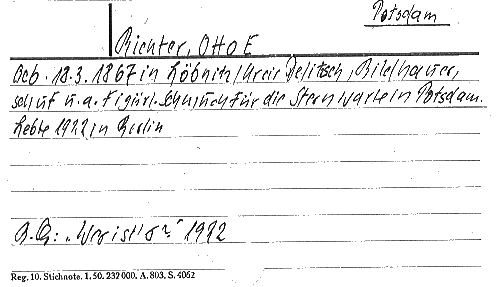 Potsdam
Richter, Otto E
Geb. 18.3.1867 in Löbnitz/Kreis Delitzsch, Bildhauer,
schuf u.a. figürl. Schmuck für die Sternwarte in Potsdam.
Lebte 1922 in Berlin
"Wer ist's?" 1922
Reg. 10. Stichnote. 1. 50. 232000. A. 803. S. 4062